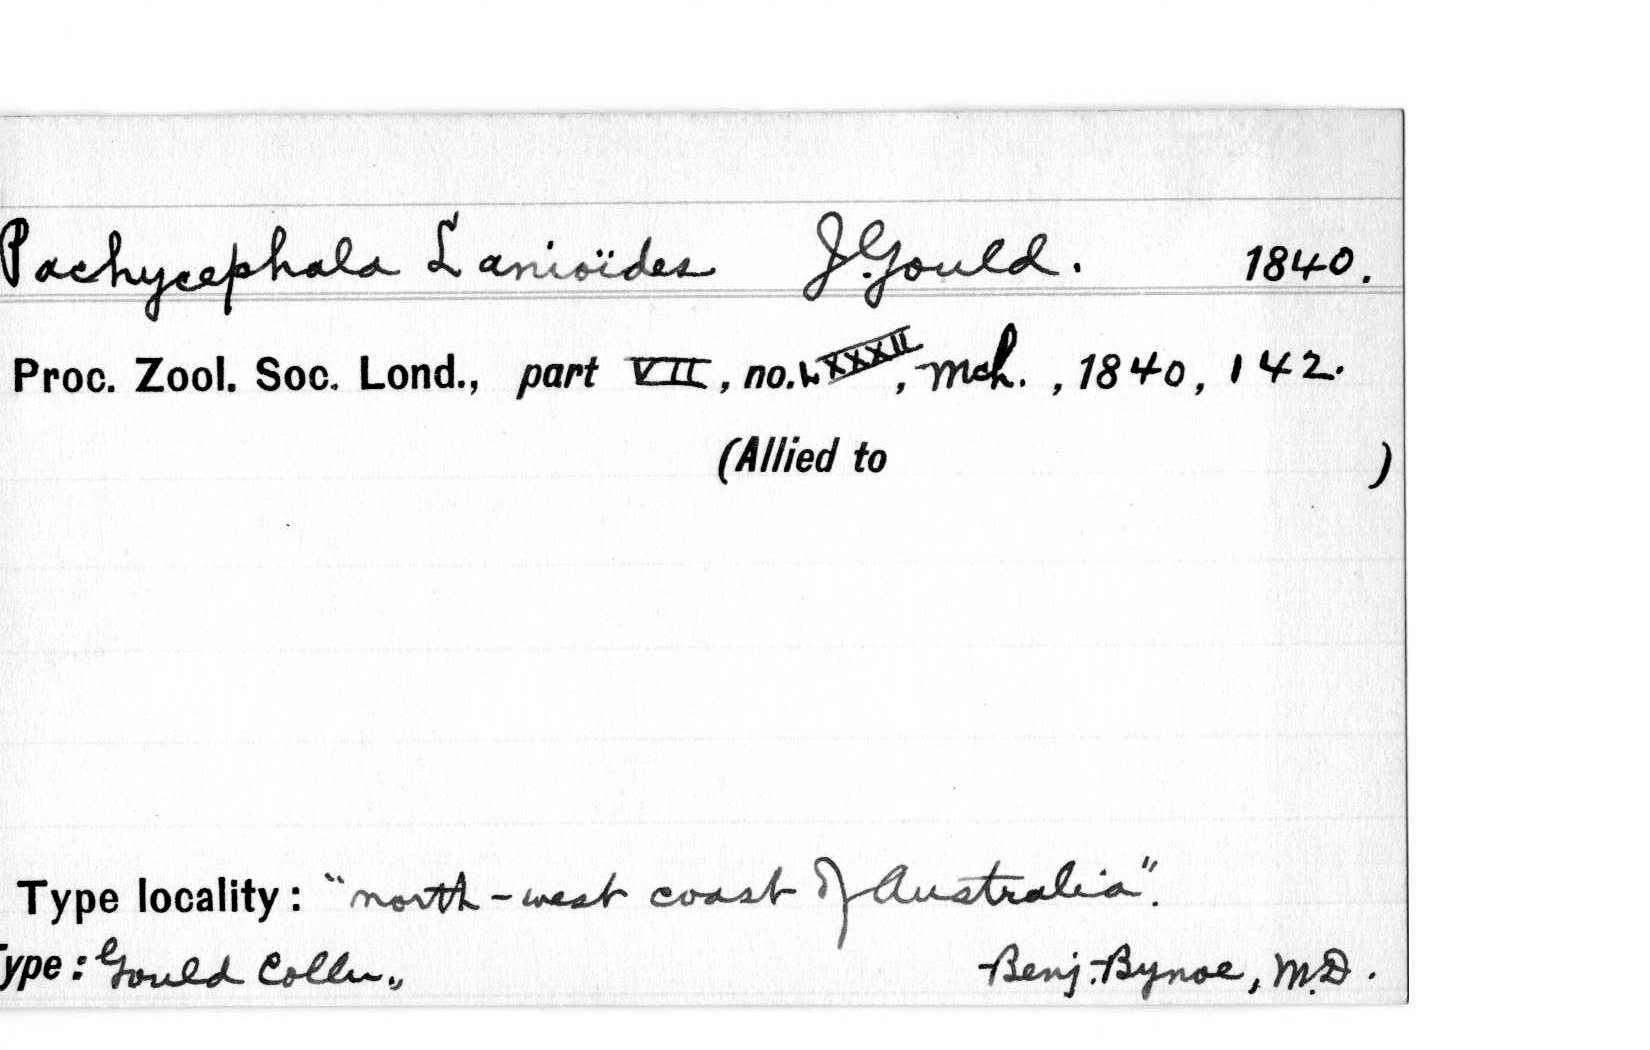 Pachycephala Lanioïdes J. Gould. 1840.
Proc. Zool. Soc. Lond., part VII, no. LXXXII, Mch. , 1840, 142.
(Allied to )
Type locality: "north-west coast of Australia".
Type: Gould Colln., Benj. Bynoe, M.D.